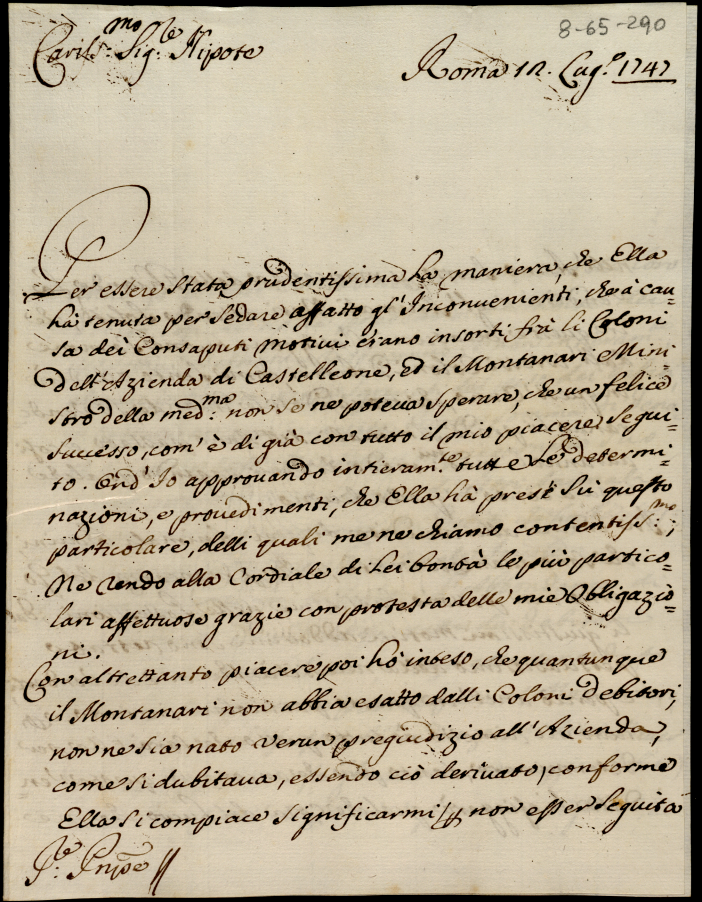 8-65-290
Cariss.mo Sig.le Nipote
Roma 12. Lug.o 1747
Per essere stata prudentissima la maniera, che Ella
hà tenuta per sedare affatto gl'Inconvenienti, che à cau=
sa dei Consaputi motivi erano insorti frà li Coloni
dell'Azienda di Castelleone, ed il Montanari Mini=
stro della med.ma non se ne poteva sperare, che un felice
successo, com'è di già con tutto il mio piacere segui=
to. Ond'Io approvando intieram.te tutte le determi=
nazioni, e provedimenti, che Ella hà presi sù questo
particolare, delli quali me ne chiamo contentiss.mo;
Ne rendo alla Cordiale di Lei bontà le più partico=
lari affettuose grazie con protesta delle mie Obligazio=
ni.
Con altrettanto piacere poi hò inteso, che quantunque
il Montanari non abbia esatto dalli Coloni debitori,
non ne sia nato verun pregiudizio all'Azienda,
come si dubitava, essendo ciò derivato, conforme
Ella si compiace significarmi, non esser seguita